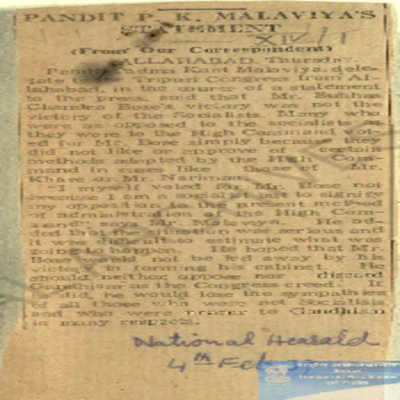 PANDIT P. K. MALAVIYA'S
STATEMENT
(From Our Correspondent)
ALLAHABAD, Thursday.
Pandit Padma Kant Malaviya, dele-
gate to Tripuri Congress from Al-
lahabad, in the course of a statement
to the press, said that Mr. Subhas
Chandra Bose's victory was not the
victory of the Socialists. Many who
were as opposed to the socialists as
they were to the High Command vot-
ed for Mr. Bose simply because they
did not like or approve of certain
methods adopted by the High Com-
mand in cases like those of Mr.
Khare or Mr. Nariman.
"I myself voted for Mr. Bose not
because I am a socialist but to signify
my opposition to the present method
of administration of the High Com-
mand" says Mr. Malaviya. He ad-
ded that the situation was serious and
it was difficult to estimate what was
going to happen. He hoped that Mr.
Bose would not be led away by his
victory in forming his cabinet. He
should neither oppose nor discard
Gandhism as the Congress creed. If
he did, he would lose the sympathies
of all those who were not Socialists
and who were nearer to Gandhism
in many respects.
National Herald
4th Feb